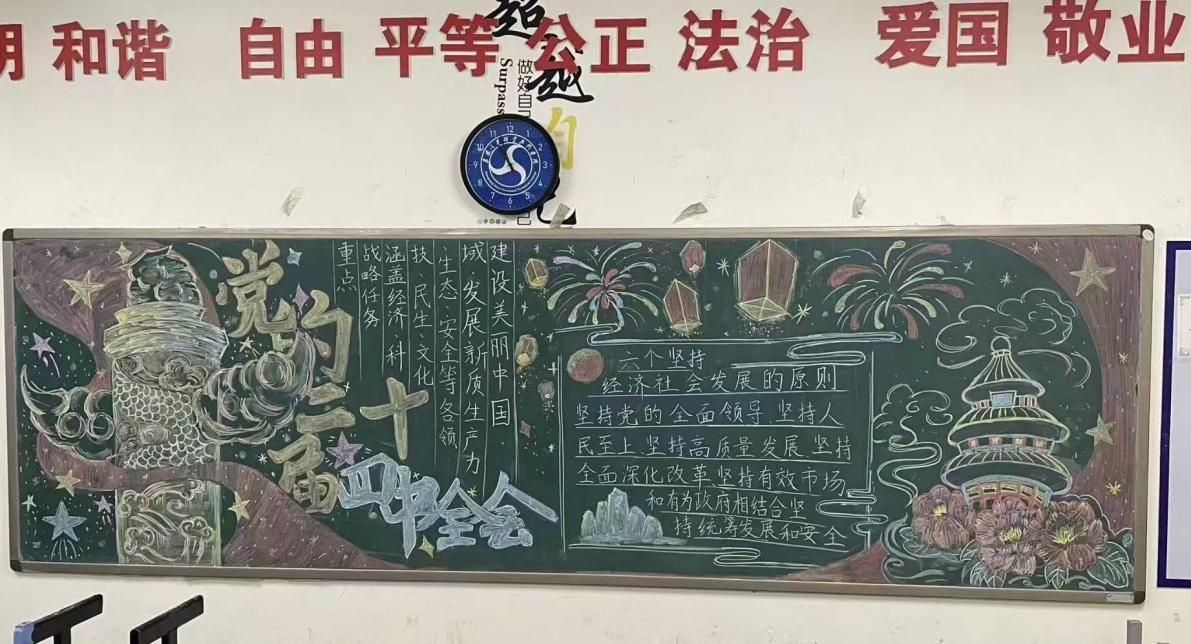 明 和谐 自由 平等 公正 法治 爱国 敬业
超越
自己
做好自己
Surpass
12 1 2 3 4 5 6 7 8 9 10 11
党的二十届
四中全会
建设美丽中国
域、发展新质生产力
、生态、安全等各领
技、民生、文化
涵盖经济、科
战略任务
重点
六个坚持
经济社会发展的原则
坚持党的全面领导、坚持人
民至上、坚持高质量发展、坚持
全面深化改革坚持有效市场
和有为政府相结合坚
持统筹发展和安全